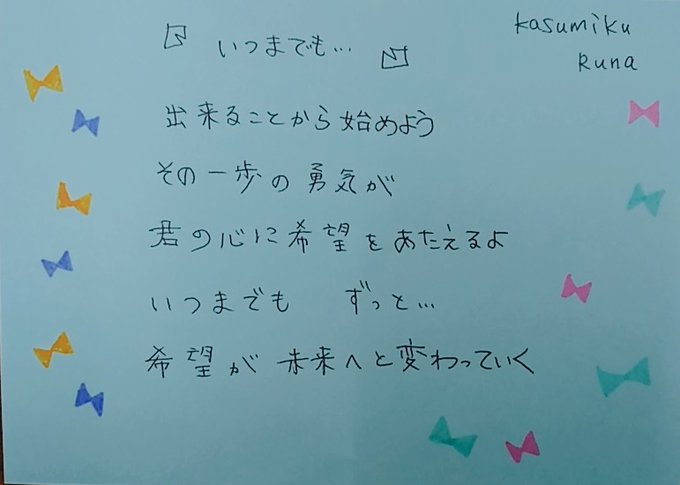 『いつまでも…』
kasumiku
Runa
出来ることから始めよう
その一歩の勇気が
君の心に希望をあたえるよ
いつまでも　ずっと…
希望が未来へと変わっていく